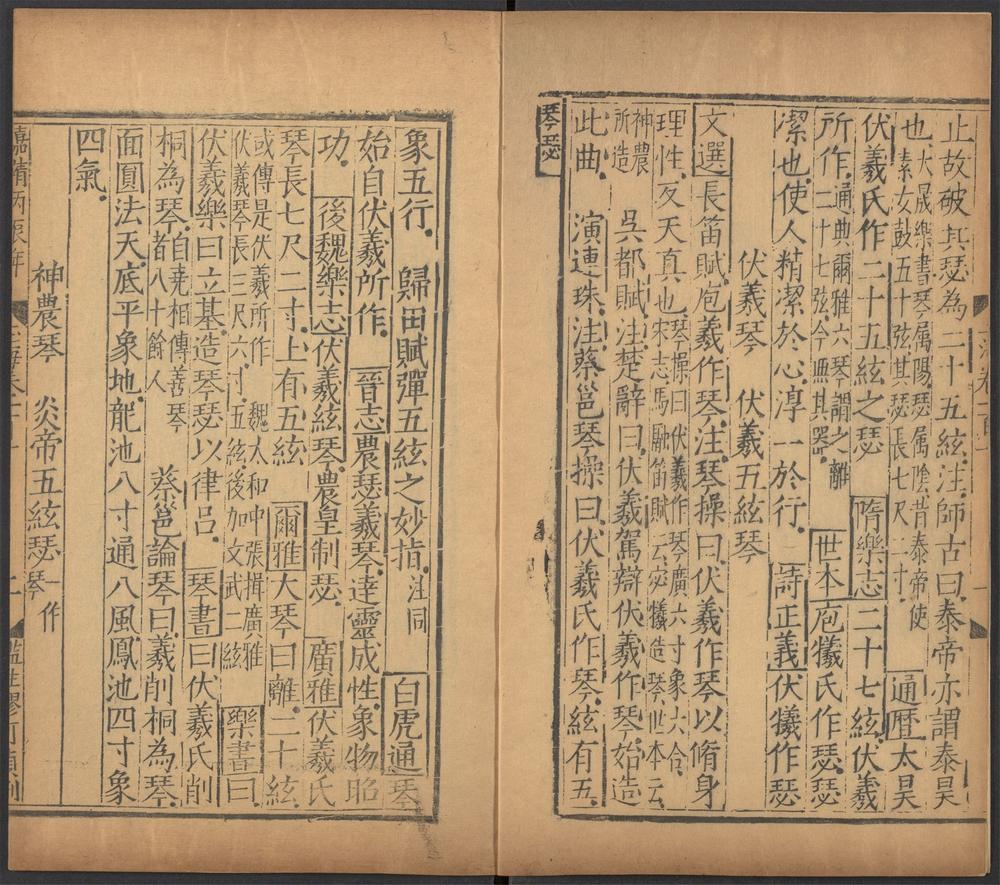 止故破其瑟為二十五絃注師古曰泰帝亦謂泰昊
也大晟樂書琴属陽瑟属陰昔泰帝使素女鼓五十弦其瑟長七尺二寸通曆太昊
伏羲氏作二十五絃之瑟隋樂志二十七絃伏羲
所作通典爾雅六琴謂之離二十七弦今無其器世本庖犧氏作瑟瑟
潔也使人精潔於心淳一於行詩正義伏犧作瑟
伏羲琴 伏羲五絃琴
文選長笛賦庖羲作琴注琴操曰伏羲作琴以脩身
理性反天真也琴操曰伏羲作琴廣六寸象六合宋志馬融笛賦云宓犧造琴世本云
神農所造吳都賦注楚辭曰伏羲駕辯伏羲作琴始造
此曲 演連珠注蔡邕琴操曰伏羲氏作琴絃有五
琴瑟
象五行 歸田賦彈五絃之妙指注同白虎通琴
始自伏羲所作 晉志農瑟羲琴達靈成性象物昭
功 後魏樂志伏羲絃琴農皇制瑟 廣雅伏羲氏
琴長七尺二寸上有五絃 爾雅大琴曰離二十絃
或傳是伏羲所作 魏太和中張揖廣雅伏羲琴長三尺六寸五絃後加文武二絃樂書曰
伏羲樂曰立基造琴瑟以律吕 琴書曰伏羲氏削
桐為琴自堯相傳善琴者八十餘人 蔡邕論琴曰羲削桐為琴
面圓法天底平象地龍池八寸通八風鳳池四寸象
四氣
神農琴 炎帝五絃瑟一作琴
嘉靖丙辰年